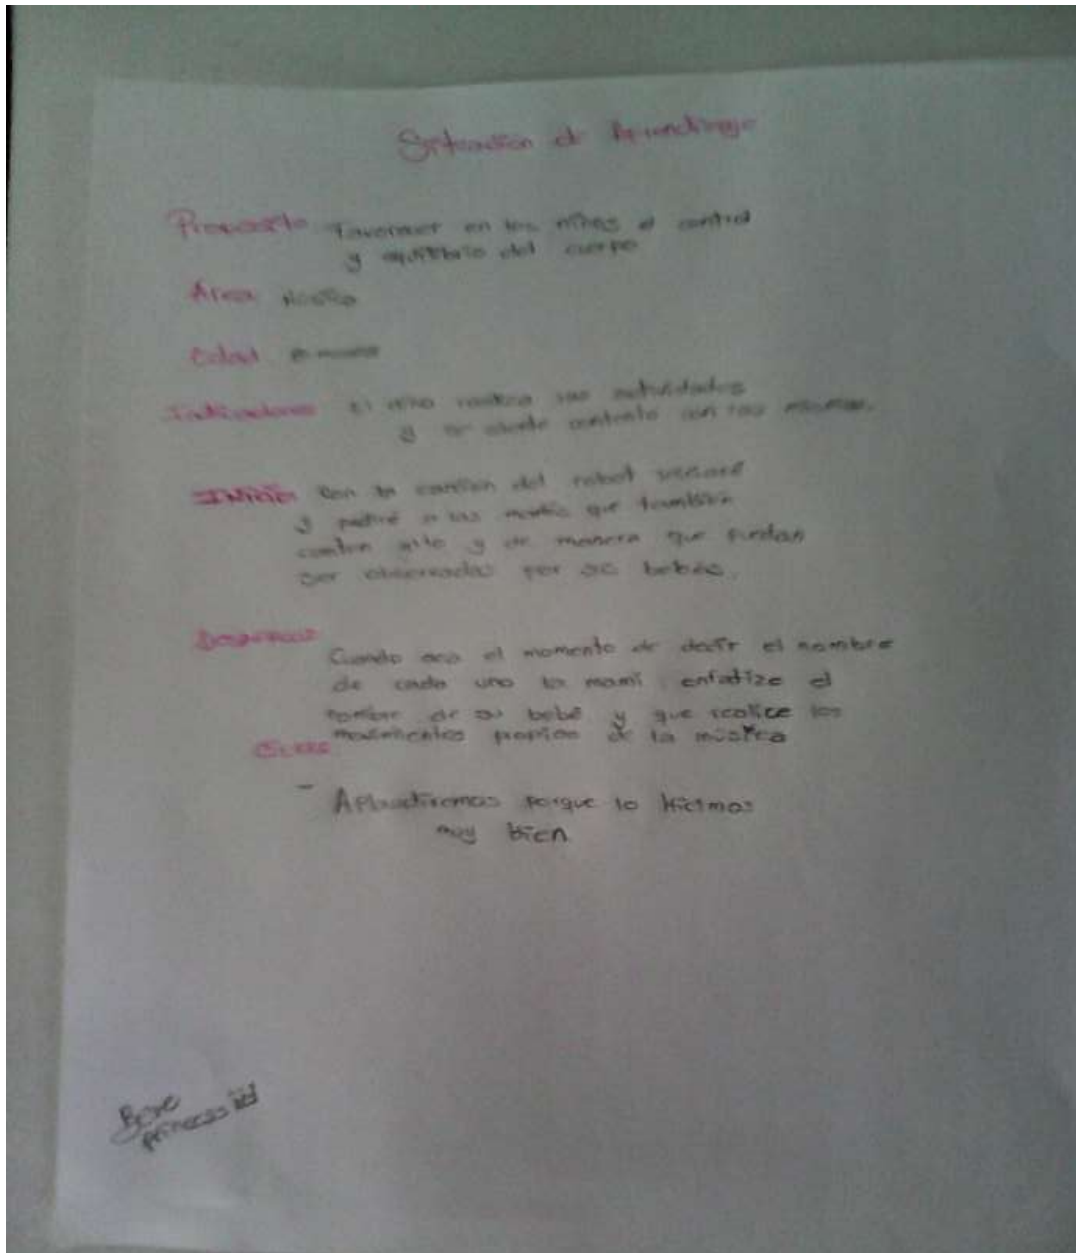 Situación de Aprendizaje
Proposito Favorecer en los niños el control
y equilibrio del cuerpo
Área
Edad
Indicadores El niño realiza las actividades
y se siente contento con las mismas.
Inicio Con la canción del robot
y pediré a las mamis que también
canten alto y de manera que puedan
ser observadas por sus bebés.
Desarrollo
Cuando sea el momento de decir el nombre
de cada uno la mami enfatize el
nombre de su bebé y que realice los
movimientos propios de la música
Cierre
- Aplaudiremos porque lo hicimos
muy bien
princess